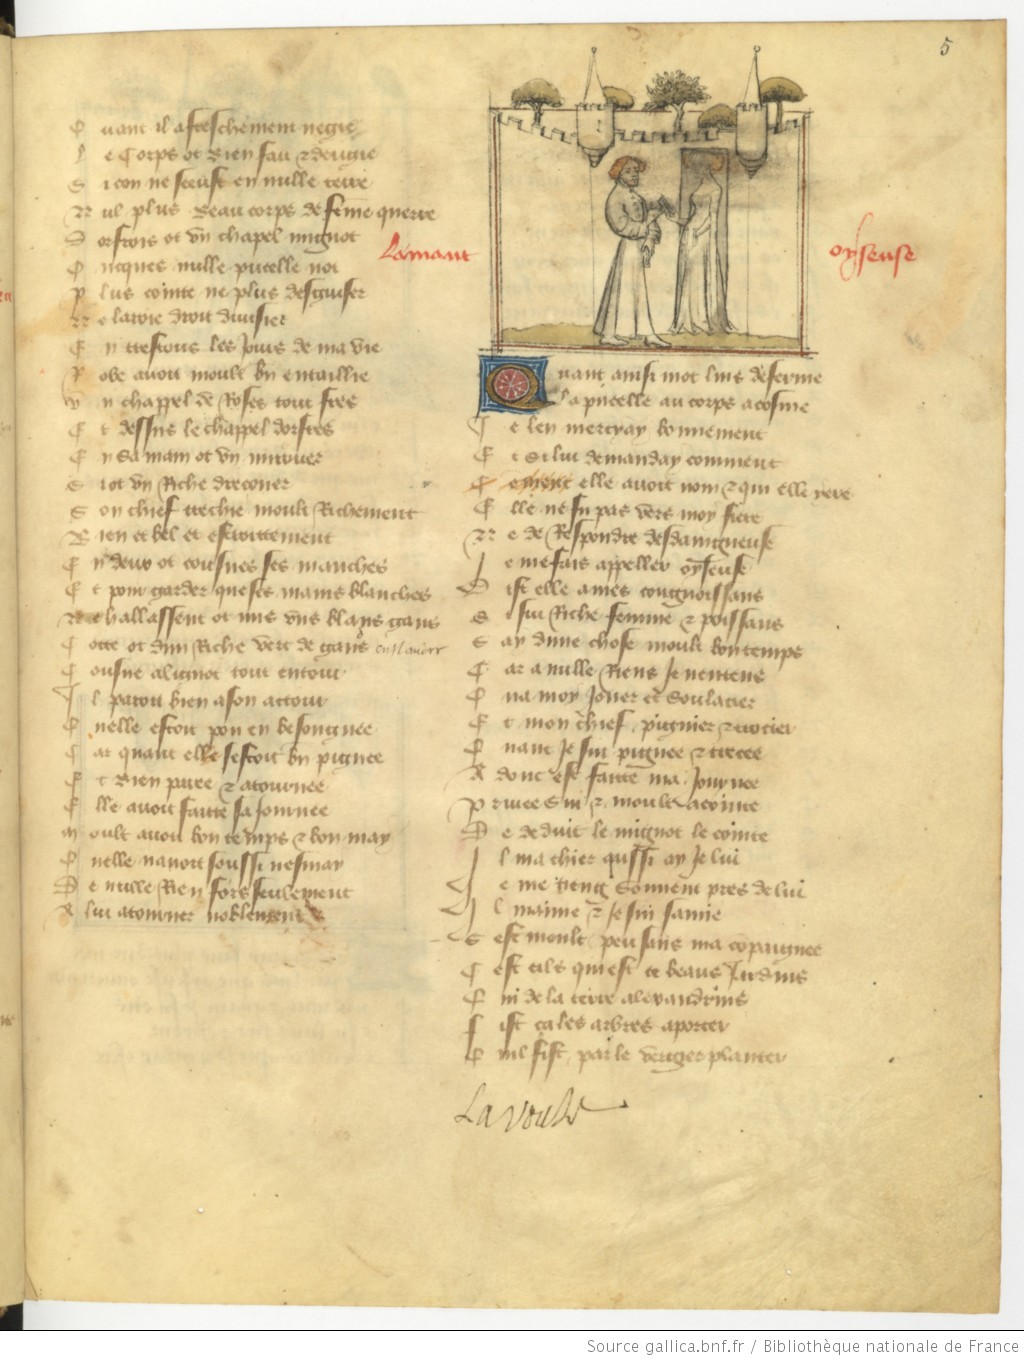 5
Quant il a freschement negie
Le Corps ot Bien fait & deugie
Si con ne sceust en nulle terre
Nul plus Beau corps de feme querre
Dorfrois ot vn chapel mignot
Oncques nulle pucelle not
Plus cointe ne plus desguiser
Ne lavoie droit divisier
En trestous les Jours de ma vie
Robe avoit moult bn entaillie
Vn chappel de Roses tout fres
Et dessus le chappel dorfres
En sa main ot vn mirouer
Si ot vn Riche dreconer
Son chief treche moult Richement
Bien et bel et estroittement
En deux ot cousues ses manches
Et pour garder que ses mains blanches
Ne hallassent ot uns vns blans gans
Cotte ot dun Riche vert de gans
Cousue a lignot tout entour
Il paroit bien a son attour
Quelle estoit pou en besongnee
Car quant elle sestoit bn pignee
Et Bien paree & atournee
Elle avoit faitte sa Journee
Moult avoit bon temps & bon may
Quelle navoit soussi nesmay
De nulle Rien fors seulement
A lui atourner noblement
Lamant
oyseuse
Quant ainsi mot luis desferme
La pucelle au corps acesme
Je len merciay bonnement
Et si lui demanday comment
elle avoit nom & qui elle yere
Elle ne fu pas vers moy fiere
Ne de Respondre desdaigneuse
Je me fais appeller oyseuse
Dist elle a mes congnoissans
Si sui Riche femme & poissans
Say dune chose moult bon temps
Car a nulle Riens Je nentens
Qua moy Jouer et Soulacier
Et mon chief pignier & trecier
Quant Je sui pignee & trecee
Adonc est faitte ma Journee
Privee sui & moult acointe
De deduit le mignot le cointe
Il ma chier qussi ay Je lui
Je me tieng Souvent pres de lui
Il maime & Je sui samie
Sest moult peu sans ma compaignee
Cest cils qui est ce beaus Jardins
Qui de la terre alexandrins
Fist ca les arbres aporter
Quil fist par le vergier planter
La voult
Source gallica.bnf.fr / Bibliothèque nationale de France